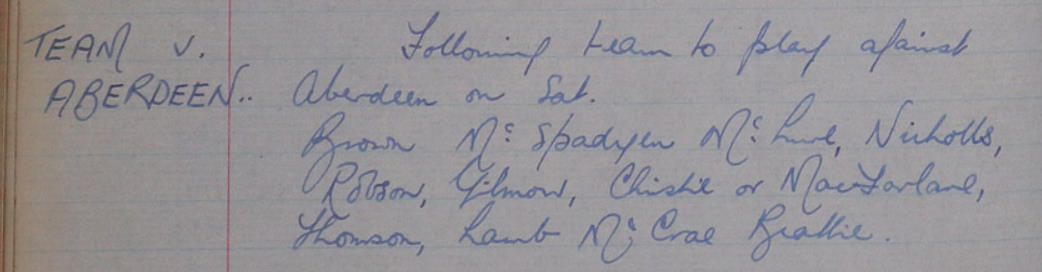 TEAM v. Following team to play against
ABERDEEN.. Aberdeen on Sat.
Brown Mc Spadyen Mc Lure, Nicholls,
Robson, Gilmour, Christie or MacFarlane,
Thomson, Lamb Mc Crae Beattie.